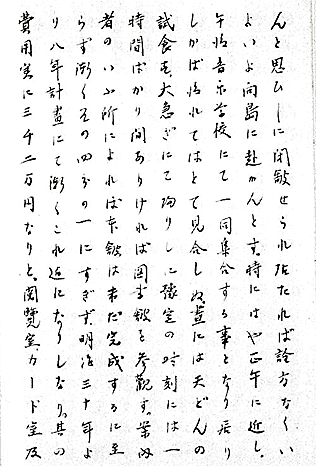 んと思ひしに閉鎖せられ居たれば詮方なくい
よいよ向島に赴かんとす、時にはや正午に近し、
午后音楽学校にて一同集合する事となり居り
しかば後れてはとて見合し、昼には天どんの
試食を、大急ぎにて陶りしに豫定の時刻には一
時間ばかり間ありければ図書館を参観す、案内
者のいふ所によれば本館は未だ完成するに至
らず漸くその四分の一にすぎず、明治三十年よ
り八年計畫にて漸くこれ迄になりしなり、其の
費用実に三千二万円なりと、閲覧室、カード室及